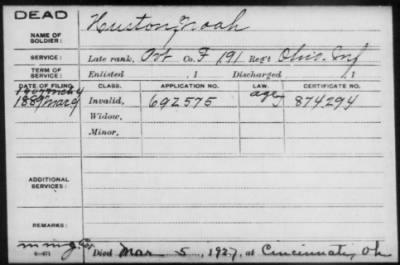 DEAD
NAME OF SOLDIER: Huston, Noah
SERVICE: Late rank, Pvt Co. F 191 Reg't Ohio Inf
TERM OF SERVICE: Enlisted , 1 Discharged , 1
DATE OF FILING. CLASS. APPLICATION NO. LAW. CERTIFICATE NO.
1889 Mar 9 Invalid, 692575 age 874294
Widow,
Minor,
ADDITIONAL SERVICES:
REMARKS:
Died Mar 5, 1927, at Cincinnati, Oh